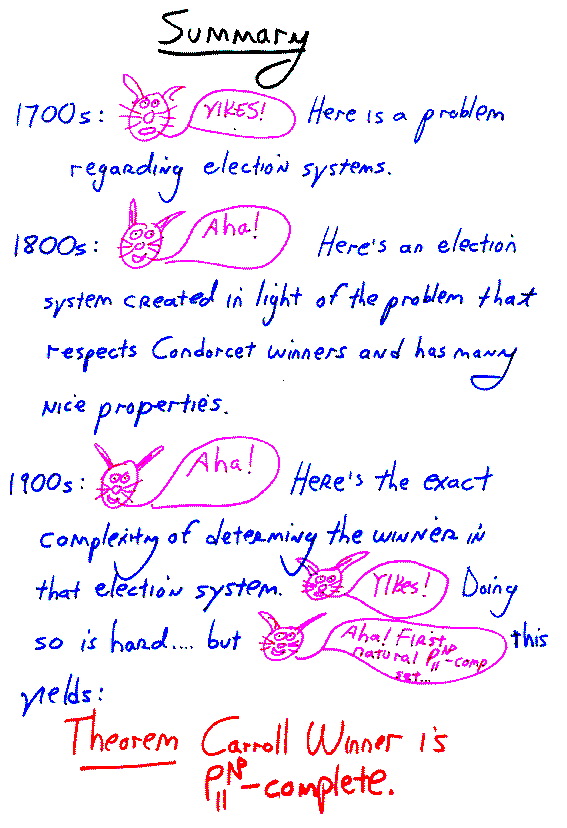 Summary
1700s: YIKES! Here is a problem
regarding election systems.
1800s: Aha! Here's an election
system created in light of the problem that
respects Condorcet winners and has many
nice properties.
1900s: Aha! Here's the exact
complexity of determing the winner in
that election system. Yikes! Doing
so is hard.... but Aha! First natural P||^NP-comp set... this
yields:
Theorem Carroll Winner is
P||^NP-complete.